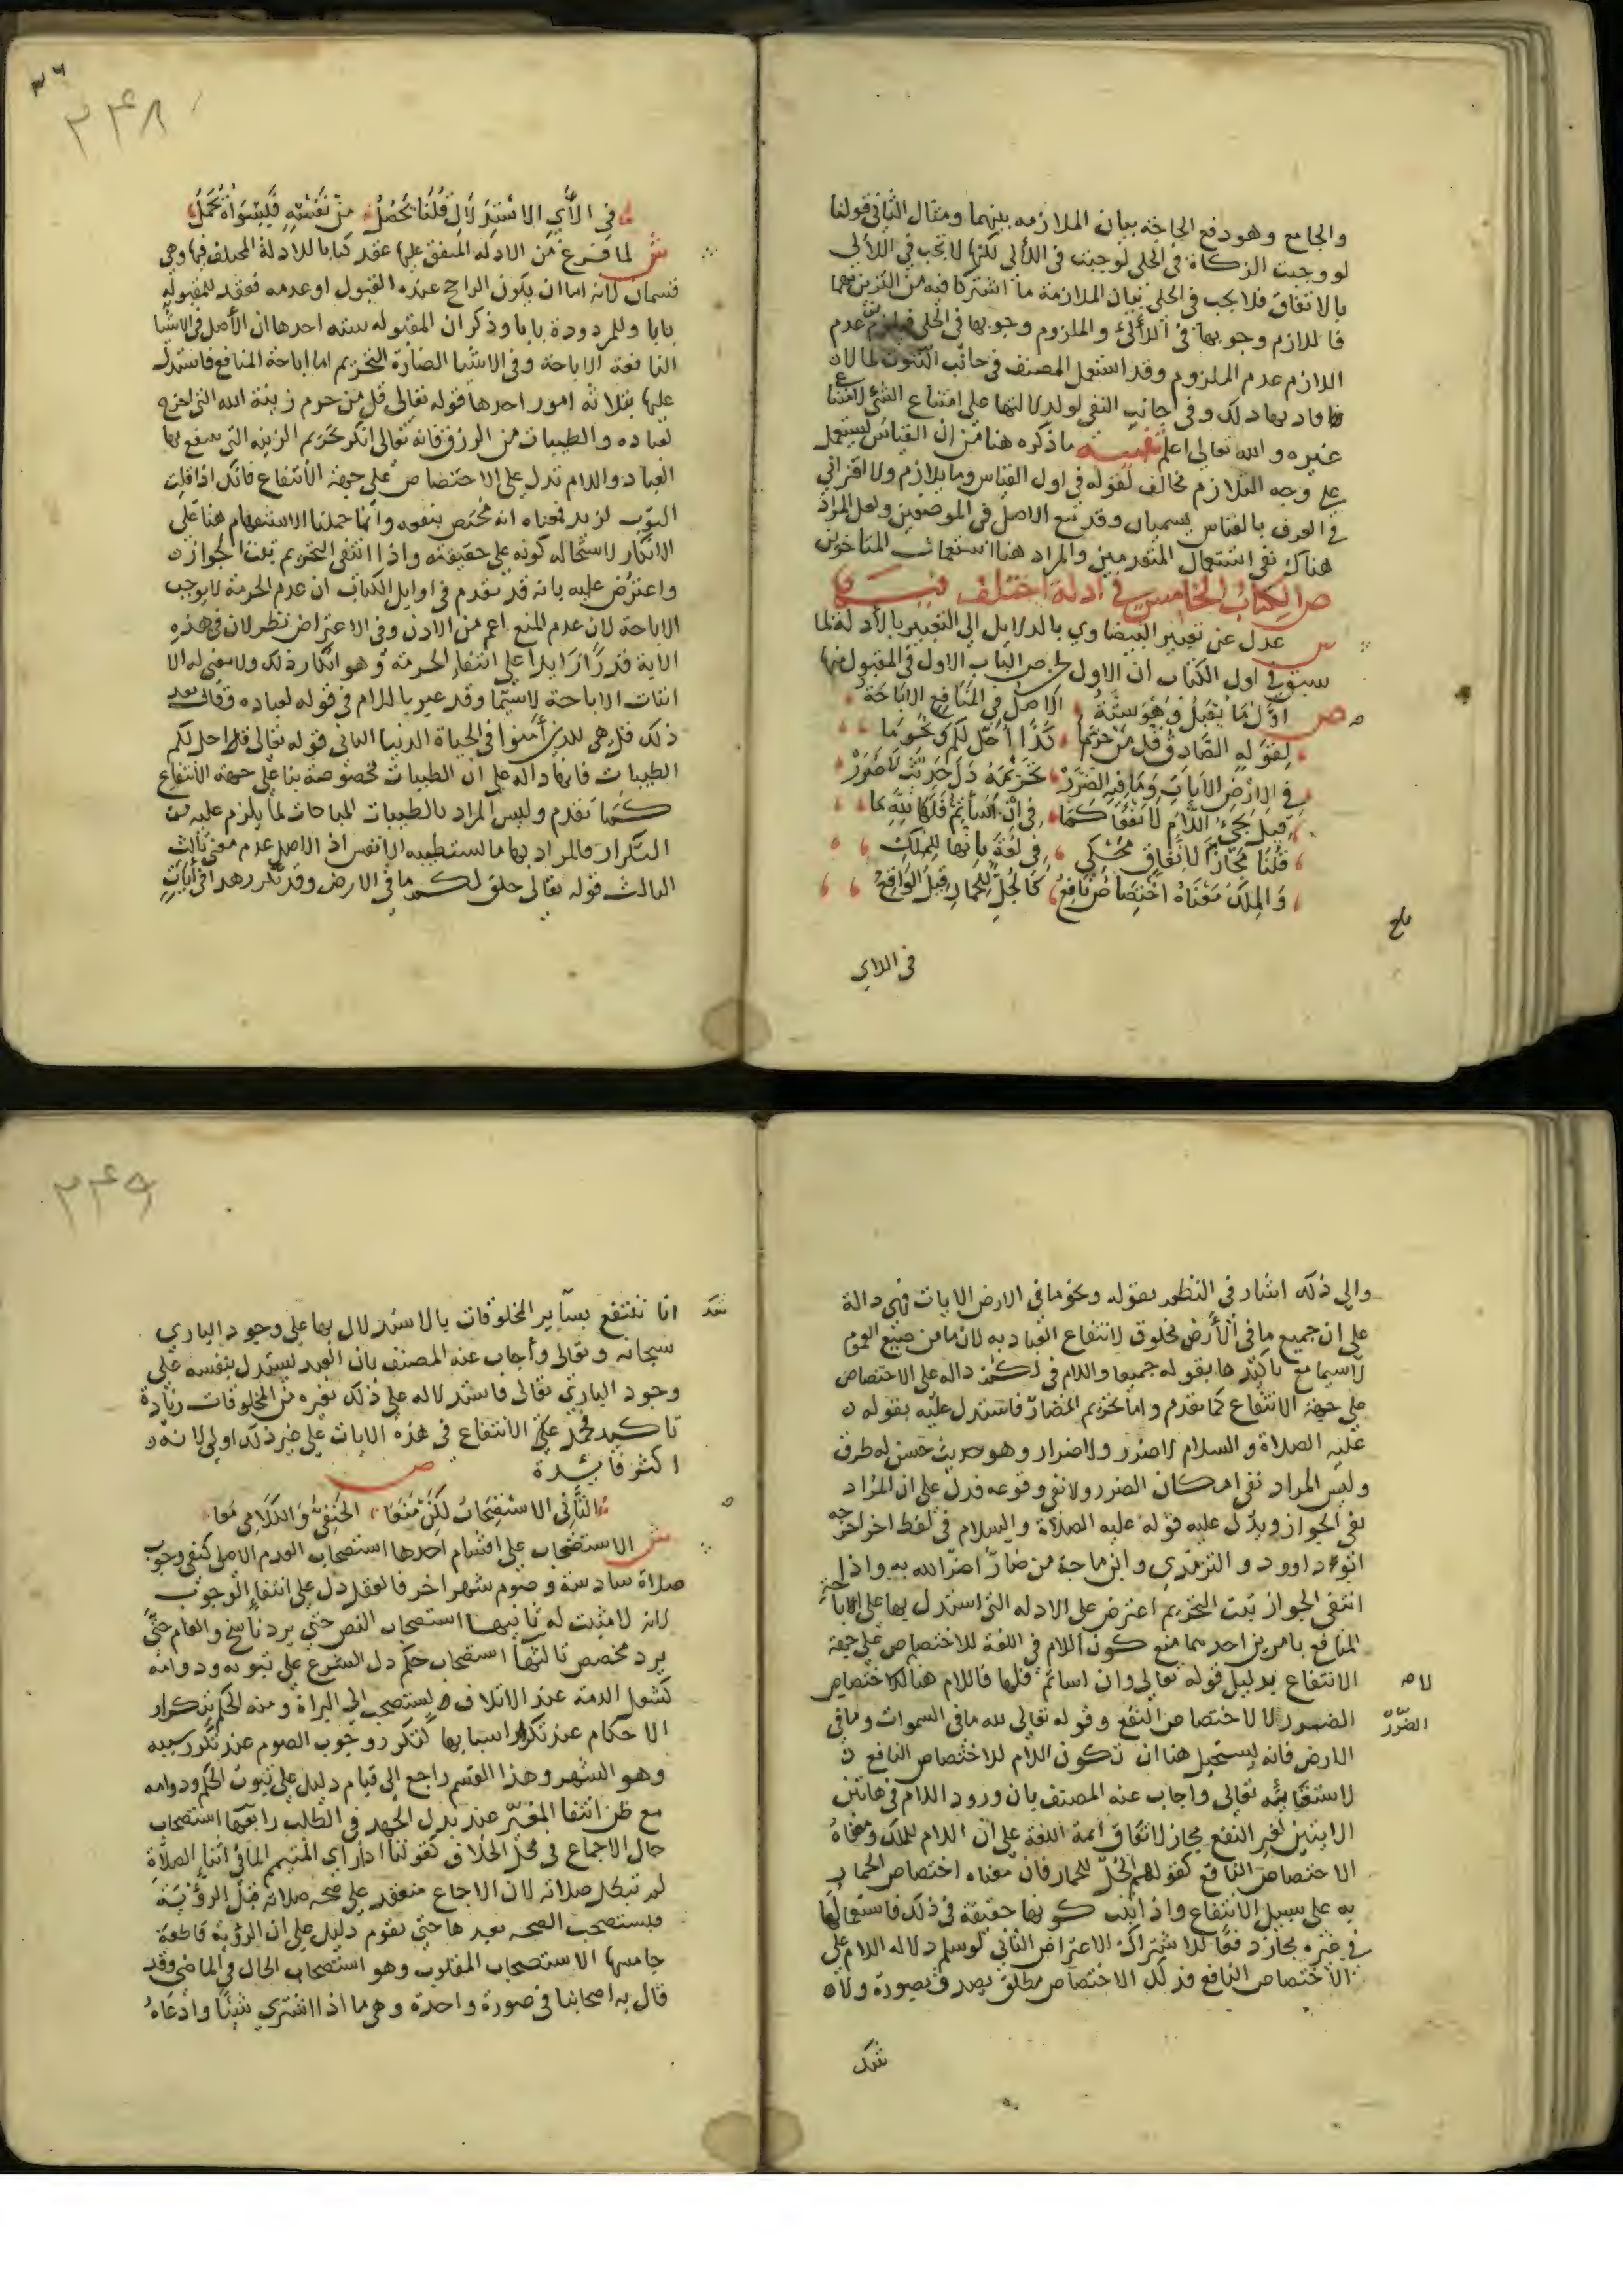 والجامع وهو دفع الحاجة بيان الملازمه بينهما ومثال الثاني قولنا
لو وجبت الزكاة في الحلي لوجبت في اللآلي لكنها لا تجب في اللآلي
بالاتفاق فلا يجب في الحلي بيان الملازمة ما اشتركا فيه من التزين بهما
فاللازم وجوبها في اللآلئ والملزوم وجوبها في الحلي فيلزم من عدم
اللازم عدم الملزوم وقد استعمل المصنف في جانب الثبوت لما لان
فاد بها ذلك وفي جانب النفي لو لدلالتها على امتناع الشئ لامتناع
غيره والله تعالى اعلم تنبيه ما ذكره هنا من ان القياس يستعمل
على وجه التلازم مخالف لقوله في اول القياس وما بلازم ولا اقتراني
في العرف بالقياس يسميان وقد تبع الاصل في الموضعين ولعل المراد
هناك نفي استعمال المتقدمين والمراد هنا استعمال المتاخرين
ص الكتاب الخامس في ادلة اختلف فيها
ش عدل عن تعبير البيضاوي بالدلايل الى التعبير بالأدلة لما
سبق في اول الكتاب ان الاول لحن ص الباب الاول في المقبول منها
ص اول ما يقبل وهو ستة الاصل في المنافع الاباحة
لقوله الصادق قل من حرما كذا احل لكم ونحو ما
في الارض الايات وما فيه الضرر تحريمه دل حديث لا ضرر
قيل يجئ اللام لا نفعا كما في ان اسأتم فلها لله ما
قلنا مجاز لاتفاق محكي في لغة بانها للملك
والملك معناه اختصاص نافع كالجل للحمار قيل الواقع
بلغ
في اللاي
٢٤٨
في الأي الاستدلال قلنا يحصل من نفسه فليسواه تحمل
ش لما فرغ من الادله المتفق عليها عقد كتابا للادلة المختلف فيها وهي
قسمان لانه اما ان يكون الراجح عنده القبول او عدمه فعقد للمقبوله
بابا وللمردودة بابا وذكر ان المقبوله سته احدها ان الأصل في الاشيا
النافعة الاباحة وفي الاشيا الضارة التحريم اما اباحة المنافع فاستدل
عليها بثلاثه امور احدها قوله تعالى قل من حرم زينة الله التي اخرج
لعباده والطيبات من الرزق فانه تعالى انكر تحريم الزينه التي ينتفع بها
العباد واللام تدل على الاختصاص على جهة الانتفاع فانك اذا قلت
الثوب لزيد فمعناه انه مختص بنفعه وانما حملنا الاستفهام هنا على
الانكار لاستحاله كونه على حقيقته واذا انتفى التحريم ثبت الجوازن
واعترض عليه بانه قد تقدم في اوايل الكتاب ان عدم الحرمة لا يوجب
الاباحة لان عدم المنع اعم من الاذن وفي الاعتراض نظر لان في هذه
الآية قدرًا زايدا على انتفاء الحرمة وهو انكار ذلك ولا معنى له الا
اثبات الاباحة لاسيما وقد عبر باللام في قوله لعباده وقال بعد
ذلك قل هي للذين آمنوا في الحياة الدنيا الثاني قوله تعالى قل احل لكم
الطيبات فانها داله على ان الطيبات مخصوصة بنا على جهة الانتفاع
كما تقدم وليس المراد بالطيبات المباحات لما يلزم عليه من
التكرار فالمراد بها ما تستطيبه الانفس اذ الاصل عدم معنى ثالث
الثالث قوله تعالى خلق لكم ما في الارض وقد تكرر هذا في آيات
والى ذلك اشار في النظم بقوله ونحو ما في الارض الايات فهي دالة
على ان جميع ما في الأرض مخلوق لانتفاع العباد به لان ما من صيغ العموم
لاسيما مع تأكيدها بقوله جميعا واللام في لكم داله على الاختصاص
على جهة الانتفاع كما تقدم واما تحريم المضار فاستدل عليه بقوله ن
عليه الصلاة والسلام لا ضرر ولا ضرار وهو حديث حسن له طرق
وليس المراد نفي امكان الضرر ولا نفي وقوعه فدل على ان المراد
نفي الجواز ويدل عليه قوله عليه الصلاة والسلام في لفظ اخر اخرجه
ابو داوود والترمذي وابن ماجة من ضارّ اضرّ الله به واذا
انتفى الجواز ثبت التحريم اعترض على الادله التي استدل بها على اباحة
المنافع بامرين احدهما منع كون اللام في اللغة للاختصاص على جهة
الانتفاع بدليل قوله تعالى وان اسأتم فلها فاللام هنا لاختصاص
الضرر لا لاختصاص النفع وقوله تعالى لله ما في السموات وما في
الضرر
الارض فانه يستحيل هنا ان تكون اللام للاختصاص النافع ن
لاستغنائه تعالى واجاب عنه المصنف بان ورود اللام في هاتين
الايتين لغير النفع مجاز لاتفاق أيمة اللغة على ان اللام للملك ومعناه
الاختصاص النافع كقولهم الجل للحمار فان معناه اختصاص الحمار
به على سبيل الانتفاع واذا ثبت كونها حقيقة في ذلك فاستعمالها
في غيره مجاز دفعًا للاشتراك الاعتراض الثاني لو سلم دلاله اللام على
الاختصاص النافع فذلك الاختصاص مطلق يصدق بصورة ولان
شك
٢٤٩
انا ننتفع بسآير المخلوقات بالاستدلال بها على وجود الباري
سبحانه وتعالى وأجاب عنه المصنف بان العبد يستدل بنفسه على
وجود الباري تعالى فاستدلاله على ذلك بغيره من المخلوقات زيادة
تاكيد فحمل على الانتفاع في هذه الايات على غير ذلك اولى لانه ن
اكثر فائدة
ص
الثاني الاستصحاب لكن منعا الحنفي والكلامي معا
ش الاستصحاب على اقسام احدها استصحاب العدم الاصلي كنفي وجوب
صلاة سادسة وصوم شهر اخر فالعقل دل على انتفاء الوجوب
لانه لا مثبت له ثانيها استصحاب النص حتى يرد ناسخ والعام حتى
يرد مخصص ثالثها استصحاب حكم دل الشرع على ثبوته ودوامه
كشغل الذمة عند الاتلاف يستصحب الى البراة ومنه الحكم بتكرار
الاحكام عند تكرار اسبابها كتكرر وجوب الصوم عند تكرر سببه
وهو الشهر وهذا القسم راجع الى قيام دليل على ثبوت الحكم ودوامه
مع ظن انتفا المغيّر عند بذل الجهد في الطلب رابعها استصحاب
حال الاجماع في محل الخلاف كقولنا اذا رأى المتيمم الما في اثناء الصلاة
لم تبطل صلاته لان الاجماع منعقد على صحه صلاته قبل الرؤية
فيستصحب الصحه بعدها حتى يقوم دليل على ان الرؤية قاطعة
خامسها الاستصحاب المقلوب وهو استصحاب الحال في الماضي وقد
قال به اصحابنا في صورة واحدة وهي ما اذا اشترى شيئًا وادعاه